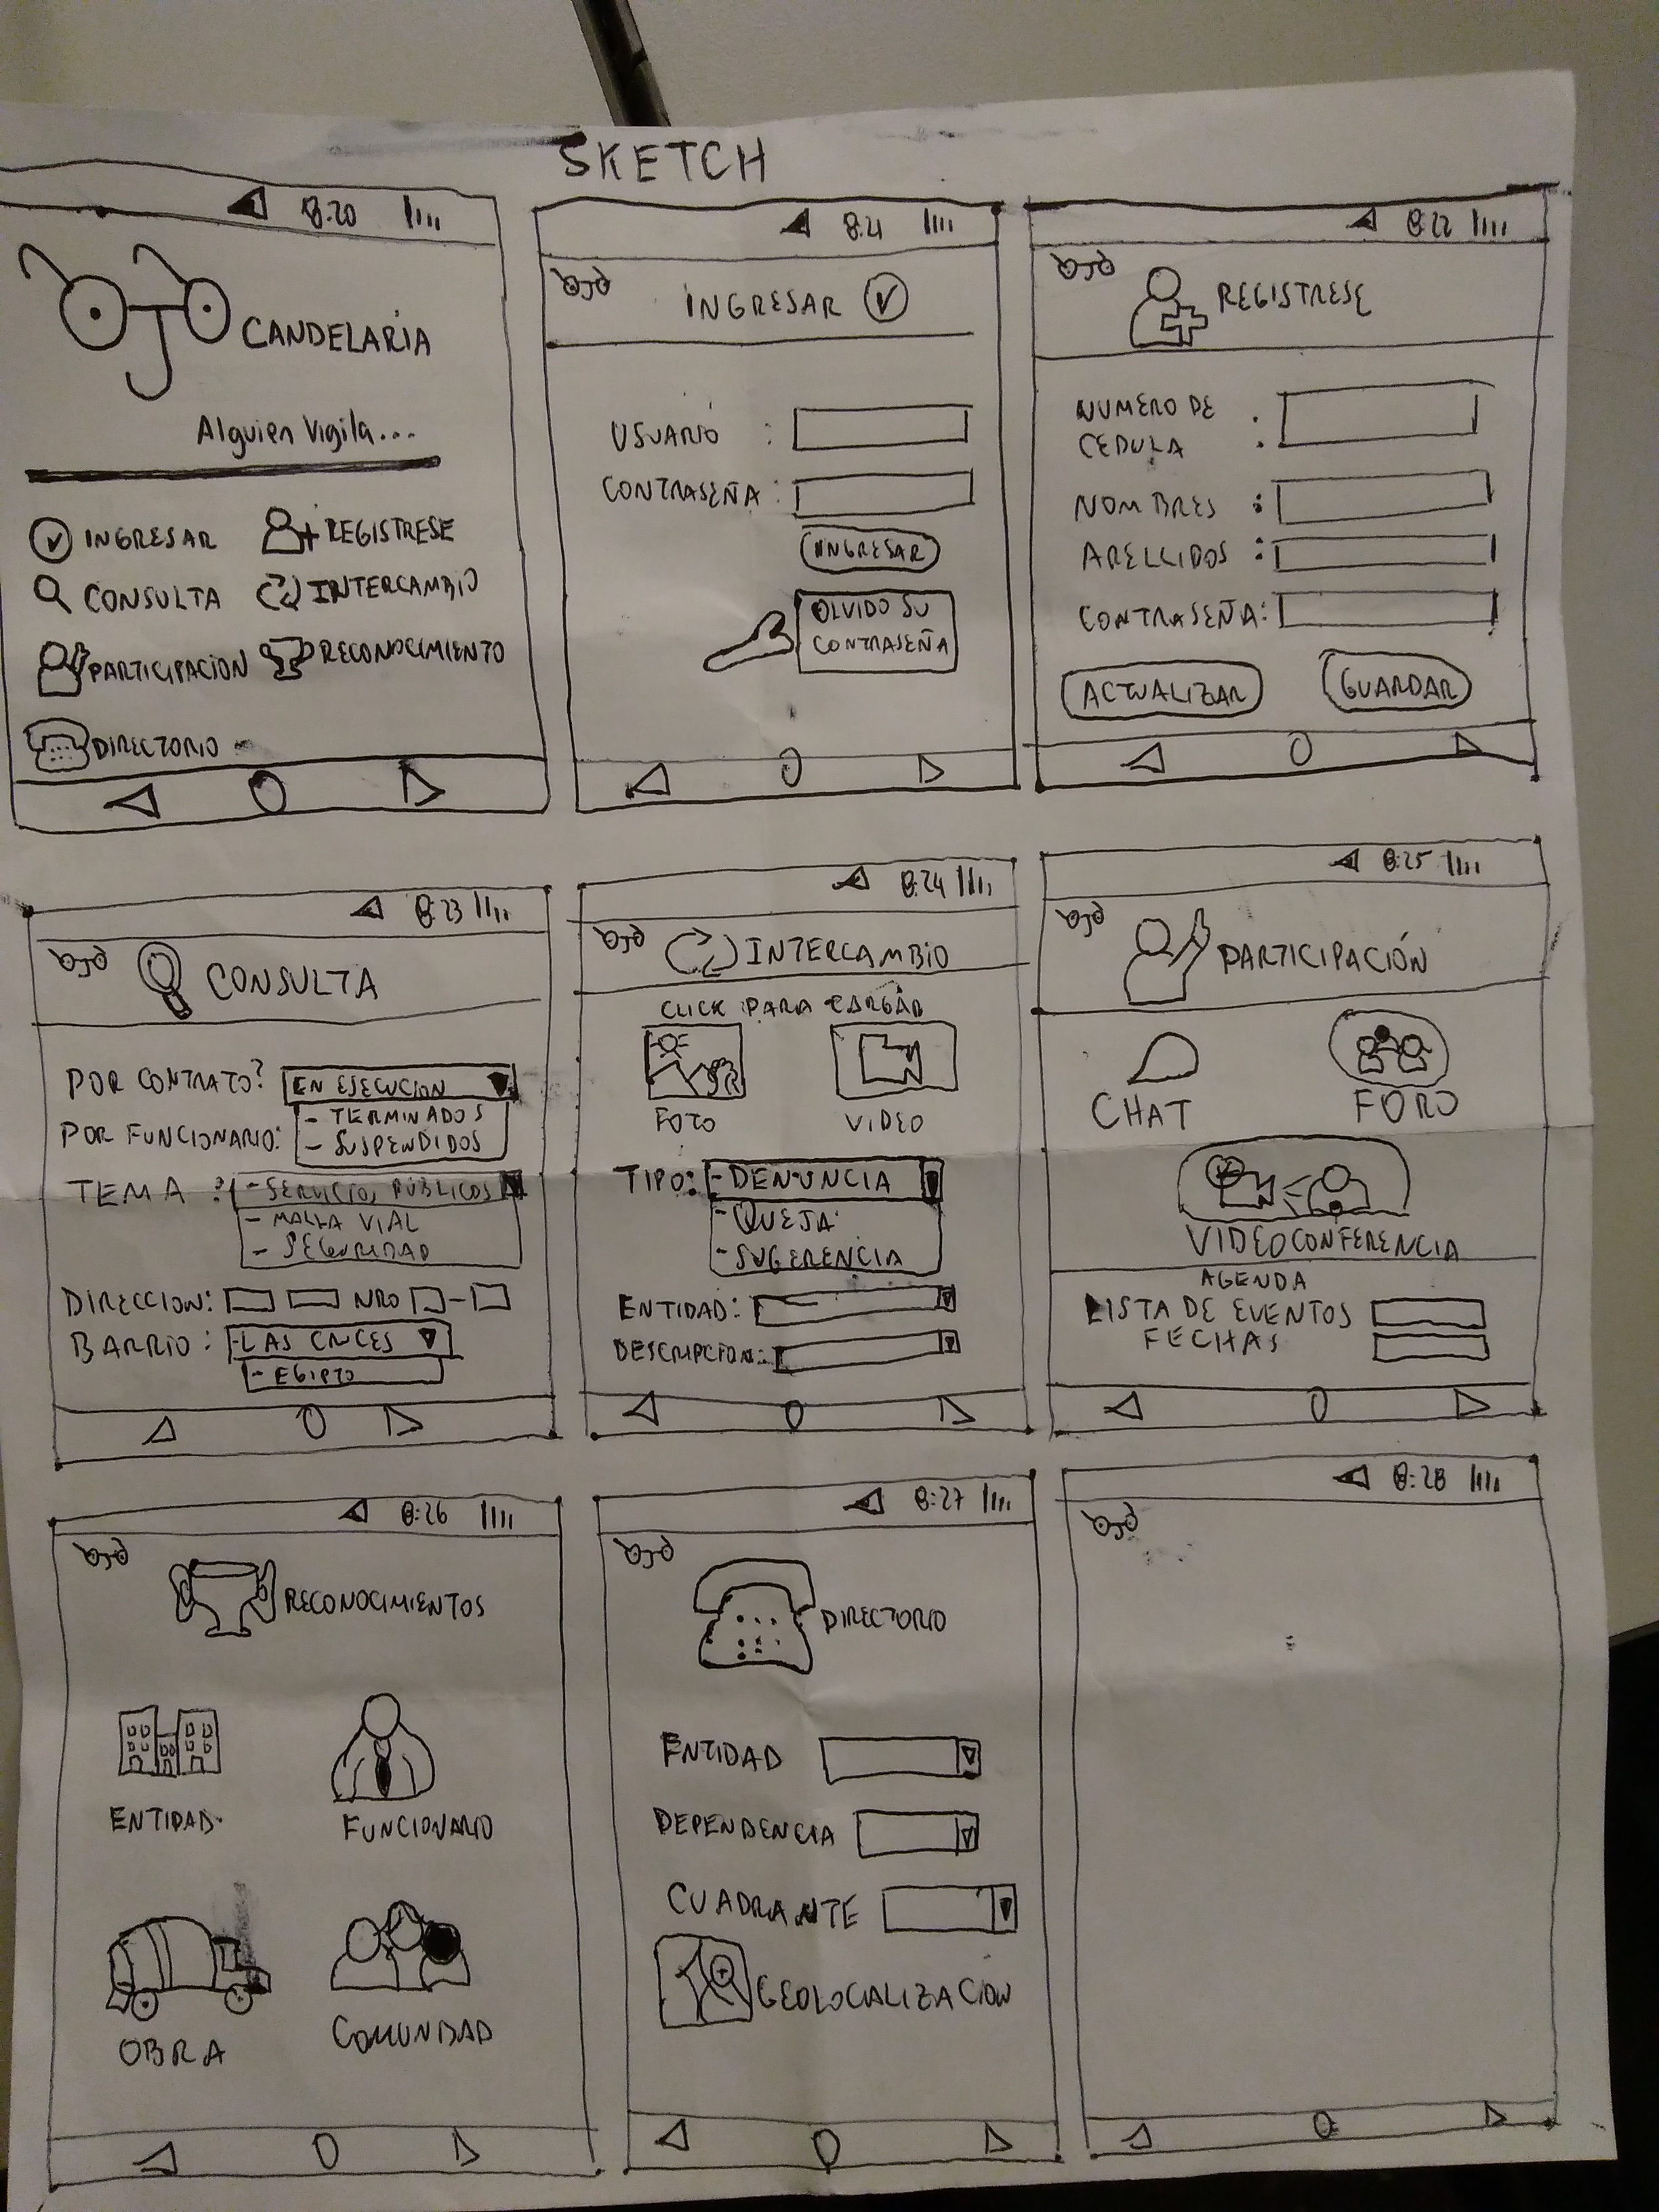 SKETCH
8:20
OJO
CANDELARIA
Alguien Vigila...
INGRESAR
REGISTRESE
CONSULTA
INTERCAMBIO
PARTICIPACION
RECONOCIMIENTO
DIRECTORIO
8:21
OJO
INGRESAR
USUARIO :
CONTRASEÑA :
INGRESAR
OLVIDO SU
CONTRASEÑA
8:22
OJO
REGISTRESE
NUMERO DE
CEDULA :
NOMBRES :
APELLIDOS :
CONTRASEÑA:
ACTUALIZAR
GUARDAR
8:23
OJO
CONSULTA
POR CONTRATO? EN EJECUCION
- TERMINADOS
POR FUNCIONARIO: - SUSPENDIDOS
TEMA ? - SERVICIOS PÚBLICOS
- MALLA VIAL
- SEGURIDAD
DIRECCION: NRO -
BARRIO: - LAS CRUCES
- EGIPTO
8:24
OJO
INTERCAMBIO
CLICK PARA CARGAR
FOTO
VIDEO
TIPO: - DENUNCIA
- QUEJA
- SUGERENCIA
ENTIDAD:
DESCRIPCION:
8:25
OJO
PARTICIPACIÓN
CHAT
FORO
VIDEOCONFERENCIA
AGENDA
LISTA DE EVENTOS
FECHAS
8:26
OJO
RECONOCIMIENTOS
ENTIDAD
FUNCIONARIO
OBRA
COMUNIDAD
8:27
OJO
DIRECTORIO
ENTIDAD
DEPENDENCIA
CUADRANTE
GEOLOCALIZACION
8:28
OJO